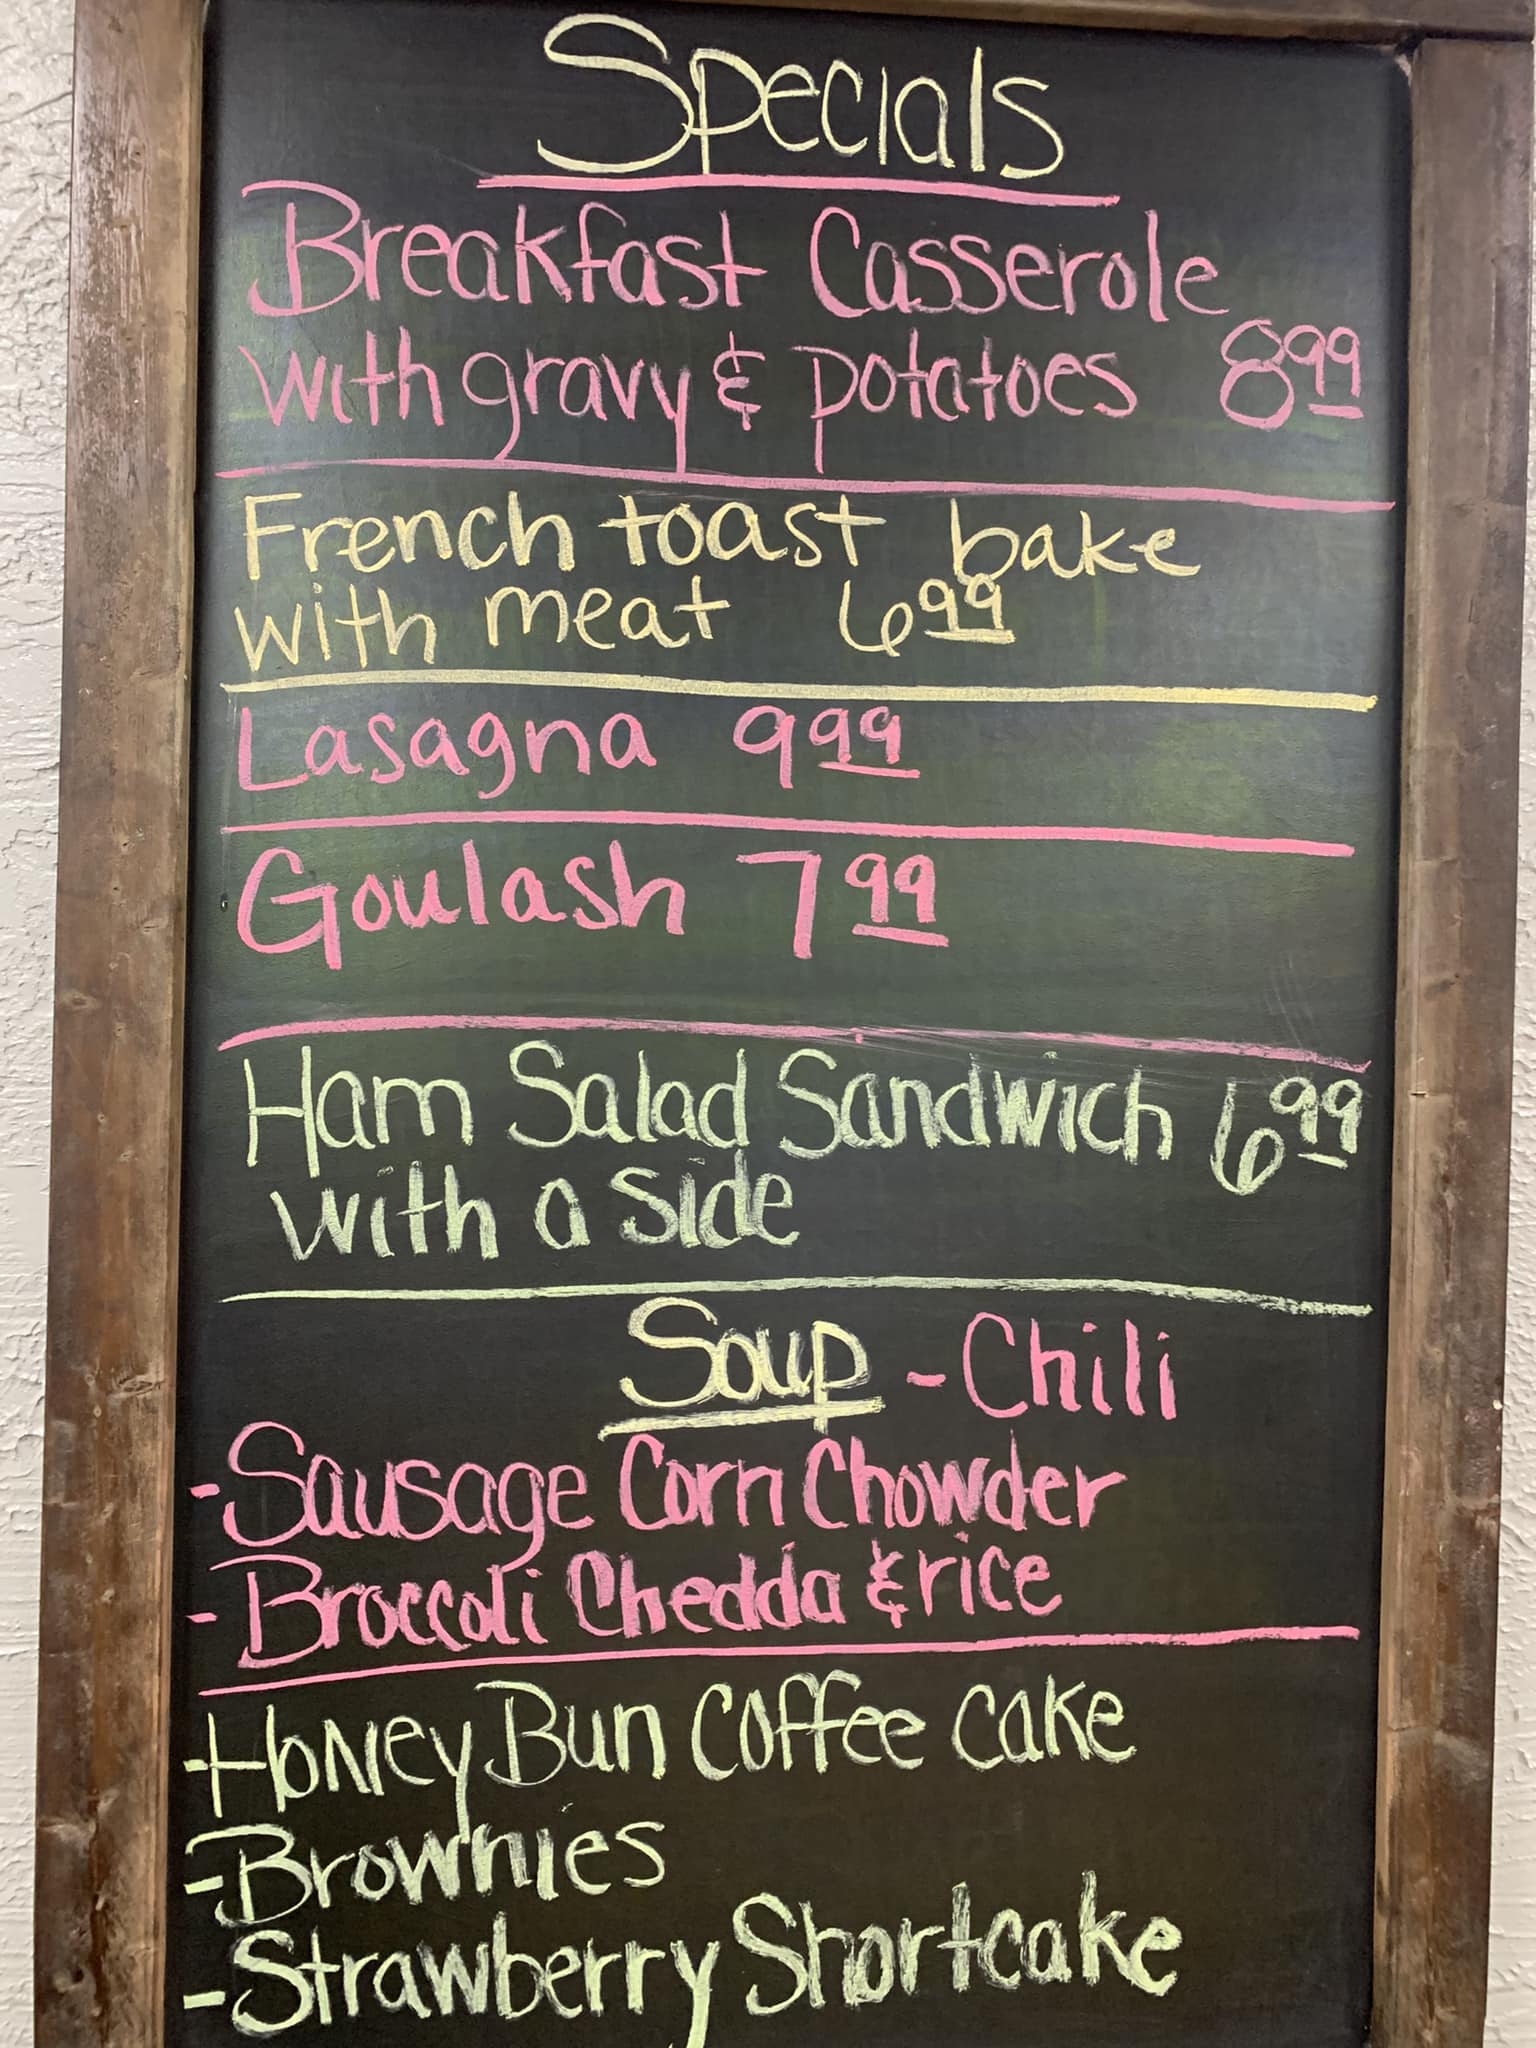 Specials
Breakfast Casserole
with gravy & potatoes 8.99
French toast bake
with meat 6.99
Lasagna 9.99
Goulash 7.99
Ham Salad Sandwich 6.99
with a side
Soup - Chili
- Sausage Corn Chowder
- Broccoli Chedda & rice
- Honey Bun Coffee Cake
- Brownies
- Strawberry Shortcake